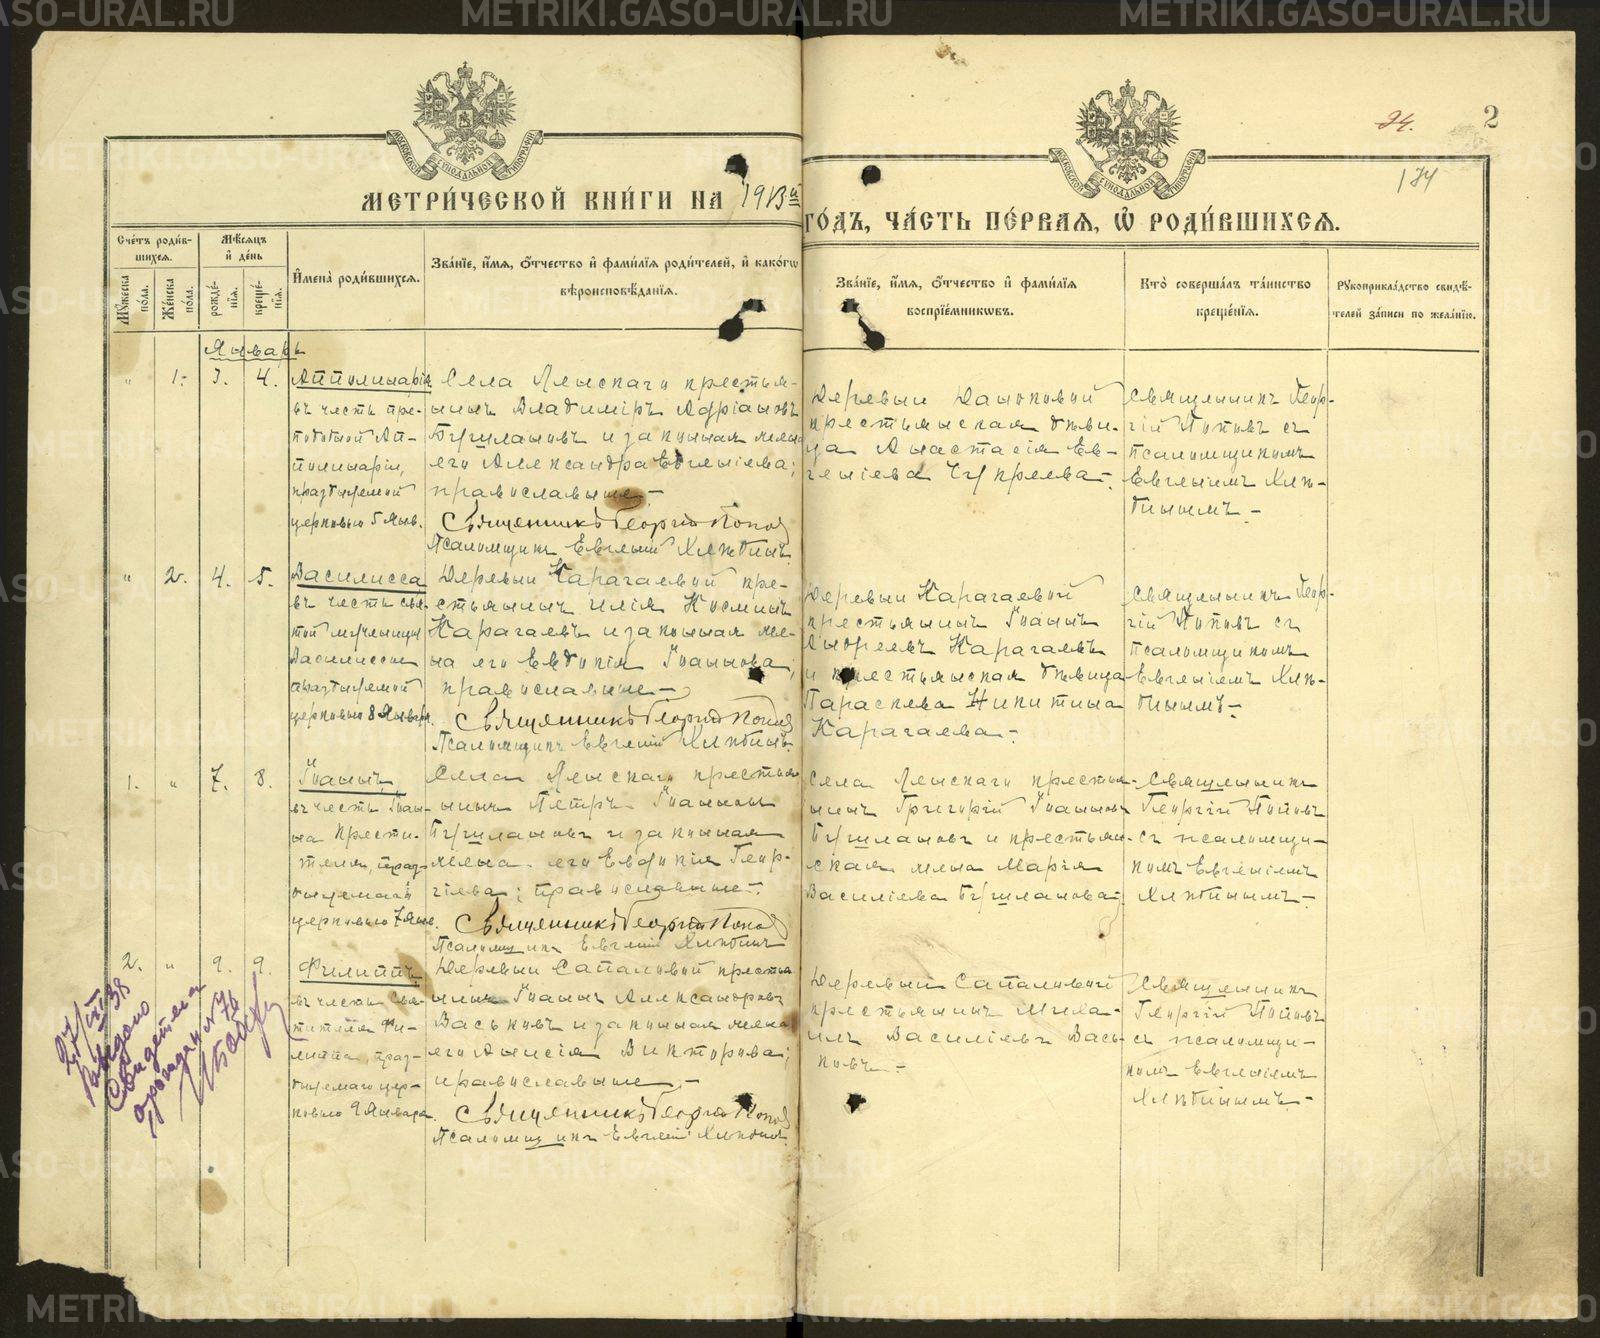 МЕТРИ́ЧЕСКОЙ КНИ́ГИ НА 1913й
ГО́ДЪ, ЧА́СТЬ ПЕ́РВАЯ, Ѡ РОДИ́ВШИХСЯ.
24.
2
174
МОСКОВСКОЙ СѴНОДАЛЬНОЙ ТИПОГРАФІИ
МОСКОВСКОЙ СѴНОДАЛЬНОЙ ТИПОГРАФІИ
Сче́тъ роди́в-
шихся.
Мꙋ́жеска по́ла.
Же́нска по́ла.
Мѣ́сяцъ
и҆ де́нь
рожде́-
нїя.
креще́-
нїя.
И҆мена̀ роди́вшихся.
Зва́нїе, и҆́мя, ѻ҆́тчество и҆ фами́лїя роди́телей, и҆ како́гѡ
вѣроисповѣ́данїя.
Зва́нїе, и҆́мя, ѻ҆́тчество и҆ фами́лїя
воспрїе́мникѡвъ.
Кто̀ соверша́лъ та́инство
креще́нїя.
Рꙋкоприкла́дство свидѣ́-
телей за́писи по жела́нїю.
Январь
" 1. 3. 4.
Апполинарія
въ честь пре-
подобной Ап-
полинаріи,
празднуемой
церковью 5 Янв.
Села Лыскаго крестья-
нинъ Владиміръ Адріановъ
Бушлановъ и законная жена
его Александра Евгеніева;
православные -
Священникъ Георгій Поповъ
Псаломщикъ Евгеній Хлѣбинъ
Крестьянская дѣви-
ца Анастасія Ев-
геніева
Священникъ Геор-
гій Поповъ съ
псаломщикомъ
Евгеніемъ Хлѣ-
бинымъ -
" 2. 4. 5.
Василисса
въ честь свя-
той мученицы
Василиссы
празднуемой
церковью 8 Января.
Деревни Карагаевой кре-
стьянинъ Илія Косминъ
Карагаевъ и законная же-
на его Евдокія Іоаннова;
православные -
Священникъ Георгій Поповъ
Псаломщикъ Евгеній Хлѣбинъ
Деревни Карагаевой
крестьянинъ Іоаннъ
Андреевъ Карагаевъ
и крестьянская дѣвица
Параскева Никитина
Карагаева -
Священникъ Геор-
гій Поповъ съ
псаломщикомъ
Евгеніемъ Хлѣ-
бинымъ -
1. " 7. 8.
Іоаннъ,
въ честь Іоан-
на Крести-
теля, праз-
днуемаго
церковью 7 Янв.
Села Лыскаго крестья-
нинъ Петръ Іоанновъ
Бушлановъ и законная
жена его Евдокія Геор-
гіева; православные -
Священникъ Георгій Поповъ
Псаломщикъ Евгеній Хлѣбинъ
Села Лыскаго крестья-
нинъ Григорій Іоанновъ
Бушлановъ и крестьян-
ская жена Марія
Василіева Бушланова
Священникъ
Георгій Поповъ
съ псаломщи-
комъ Евгеніемъ
Хлѣбинымъ -
2. " 9. 9.
Филиппъ,
въ честь Свя-
тителя Фи-
липпа, праз-
днуемаго цер-
ковью 9 Января.
Деревни Сапаловой крестья-
нинъ Іоаннъ Александровъ
Васьковъ и законная жена
его Анисія Викторова;
православные -
Священникъ Георгій Поповъ
Псаломщикъ Евгеній Хлѣбинъ
Деревни Сапаловой
крестьянинъ Миха-
илъ Василіевъ Вась-
ковъ -
Священникъ
Георгій Поповъ
съ псаломщи-
комъ Евгеніемъ
Хлѣбинымъ -
Выдано
METRIKI.GASO-URAL.RU